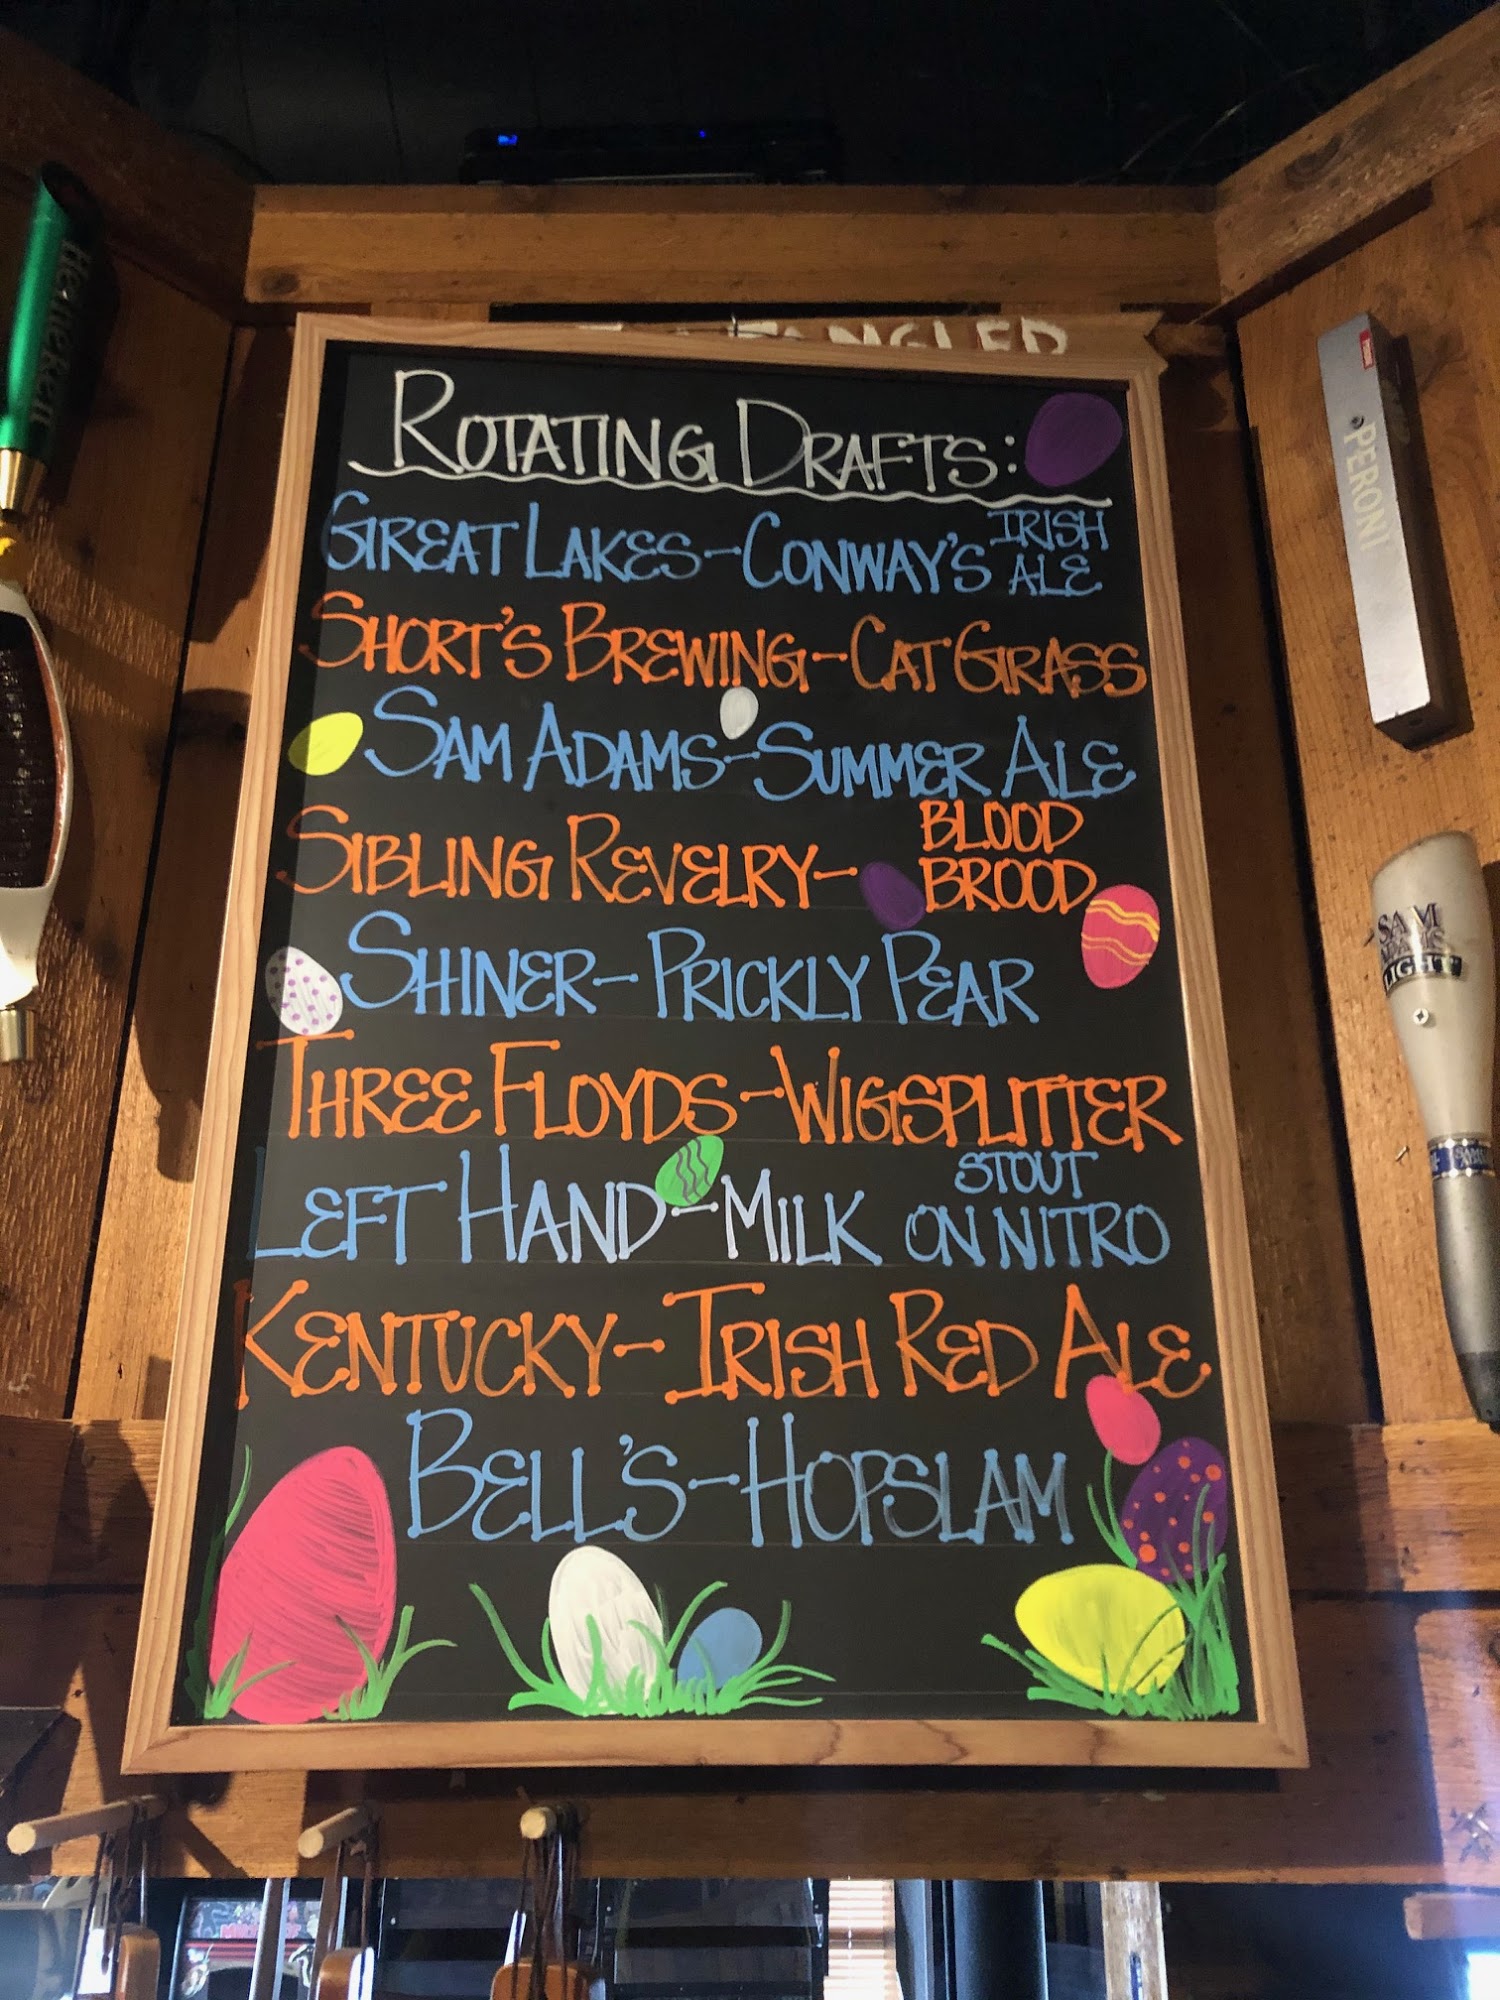 Heineken
TANGLED
ROTATING DRAFTS:
GREAT LAKES-CONWAY'S IRISH ALE
SHORT'S BREWING-CAT GRASS
SAM ADAMS-SUMMER ALE
SIBLING REVELRY- BLOOD BROOD
SHINER-PRICKLY PEAR
THREE FLOYDS-WIGSPLITTER
LEFT HAND-MILK STOUT ON NITRO
KENTUCKY-IRISH RED ALE
BELL'S-HOPSLAM
PERONI
SAM
ADAMS
LIGHT